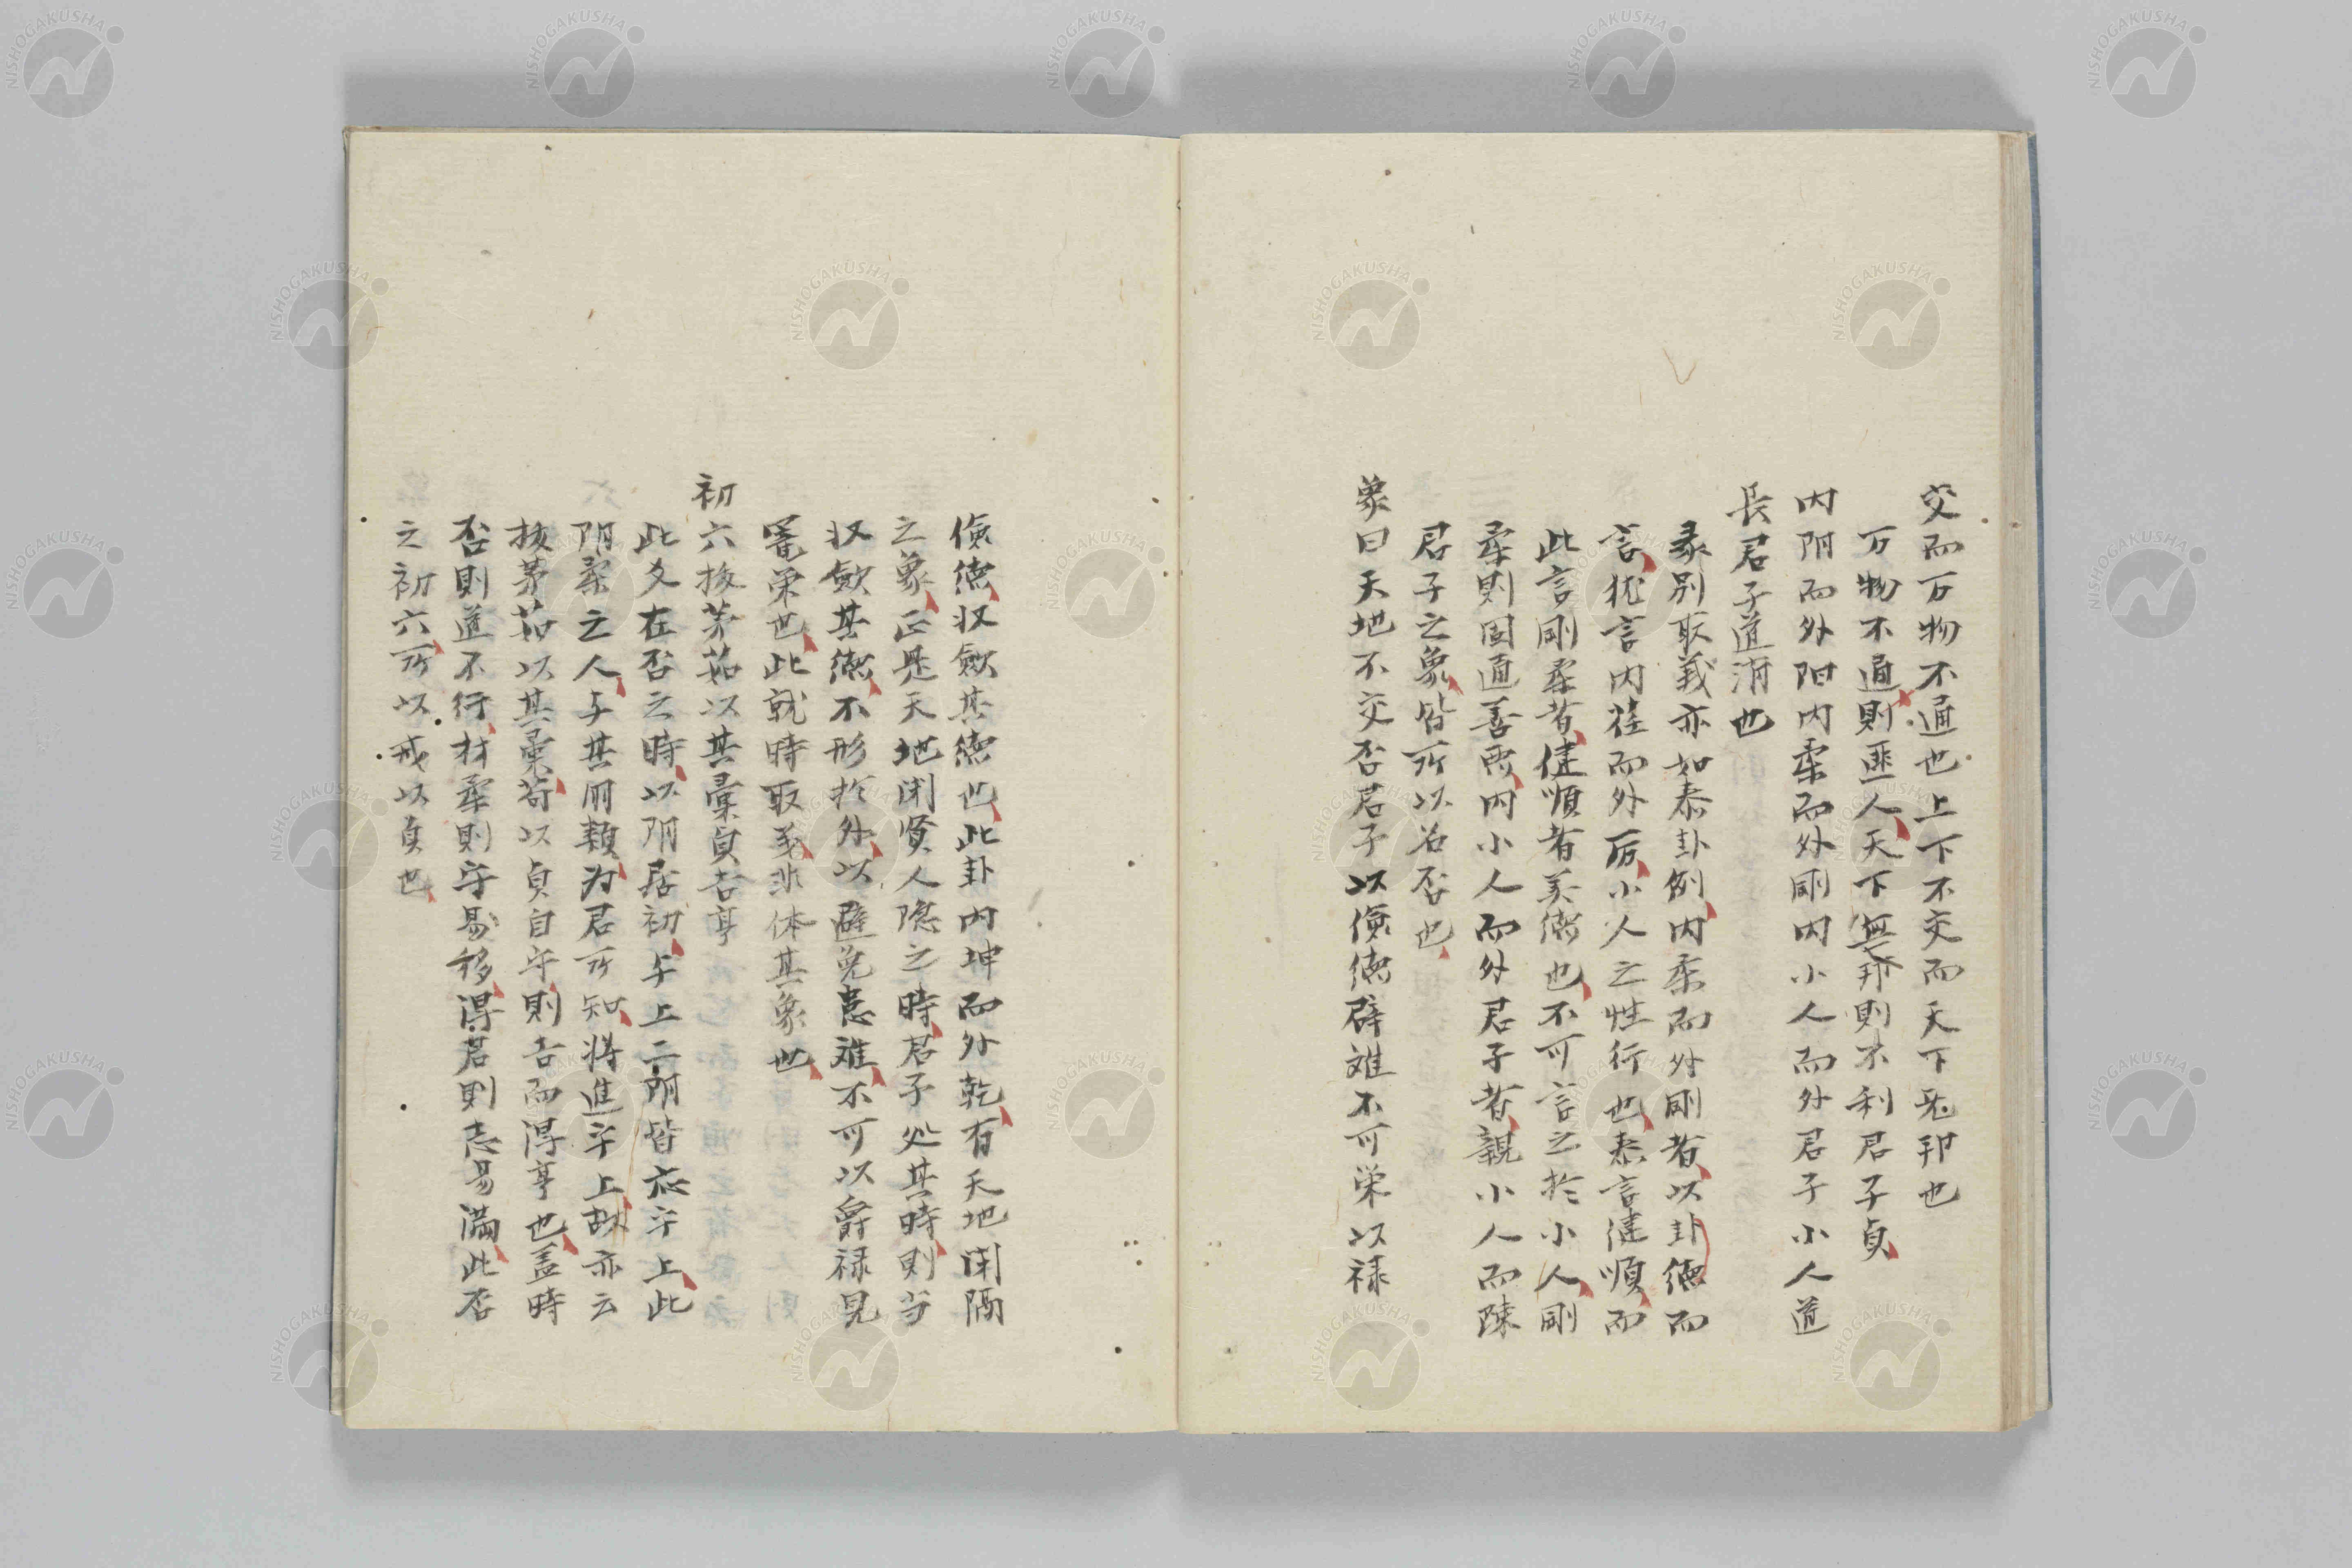 交而万物不通也上下不交而天下无邦也
万物不通則匪人天下無邦則不利君子貞
内阴而外阳内柔而外剛内小人而外君子小人道
長君子道消也
彖别取義亦如泰卦例内柔而外剛者以卦德而
言犹言内荏而外厉小人之性行也泰言健順而
此言剛柔者健順者美德也不可言之於小人剛
柔則固通善悪内小人而外君子者親小人而踈
君子之象皆所以名否也
象曰天地不交否君子以儉德辟難不可栄以禄
儉德收歛其德也此卦内坤而外乾有天地閉隔
之象正是天地闭贤人隐之時君子処其時則当
収歛其德不形於外以避免患難不可以爵禄見
寵栄也此就時取義非体其象也
初六拔茅茹以其彙貞吉亨
此爻在否之時以阴居初与上二阴皆応乎上此
阴柔之人与其朋類为君所知将進乎上故亦云
拔茅茹以其彙苟以貞自守則吉而得亨也盖時
否則道不行材柔則守易移得君則志易滿此否
之初六所以戒以貞也
NISHOGAKUSHA